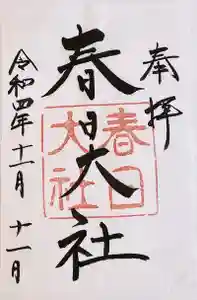 奉拝
春日大社
春日
大社
令和四年十一月十一日